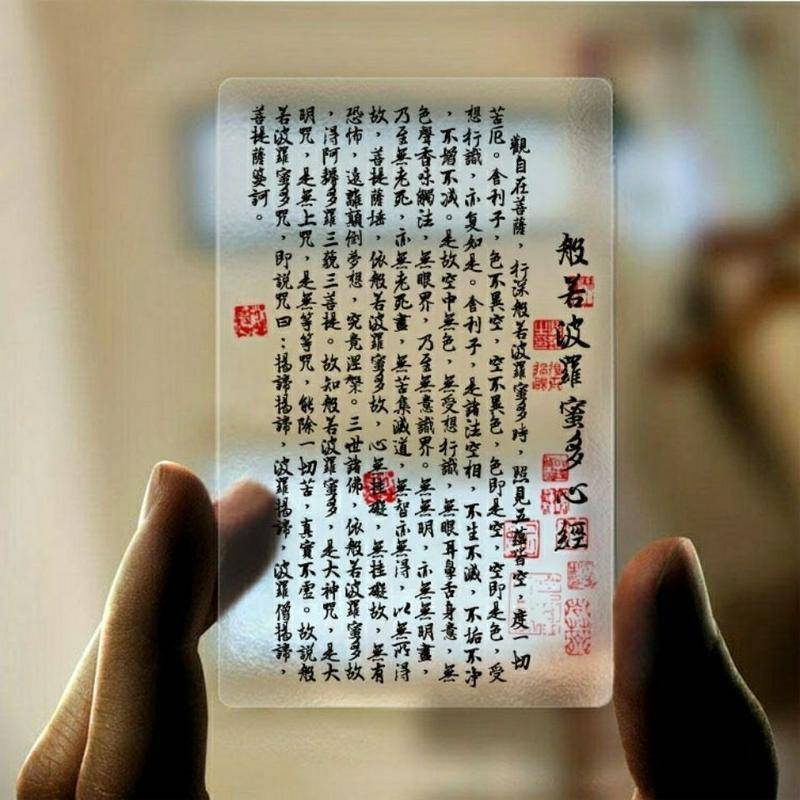 般若波羅蜜多心經
觀自在菩薩，行深般若波羅蜜多時，照見五蘊皆空，度一切
苦厄。舍利子，色不異空，空不異色，色即是空，空即是色，受
想行識，亦复如是。舍利子，是諸法空相，不生不滅，不垢不净
，不增不减。是故空中無色，無受想行識，無眼耳鼻舌身意，無
色聲香味觸法，無眼界，乃至無意識界。無無明，亦無無明盡，
乃至無老死，亦無老死盡，無苦集滅道，無智亦無得，以無所得
故，菩提薩埵，依般若波羅蜜多故，心無挂礙，無挂礙故，無有
恐怖，遠離顛倒夢想，究竟涅槃。三世諸佛，依般若波羅蜜多故
，得阿耨多羅三藐三菩提。故知般若波羅蜜多，是大神咒，是大
明咒，是無上咒，是無等等咒，能除一切苦，真實不虛。故說般
若波羅蜜多咒，即説咒曰：揭諦揭諦，波羅揭諦，波羅僧揭諦，
菩提薩婆訶。